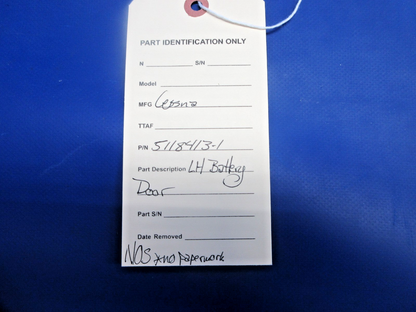 PART IDENTIFICATION ONLY
N S/N
Model
MFG Cessna
TTAF
P/N 5118413-1
Part Description LH Battery
Door
Part S/N
Date Removed
NOS *no paperwork